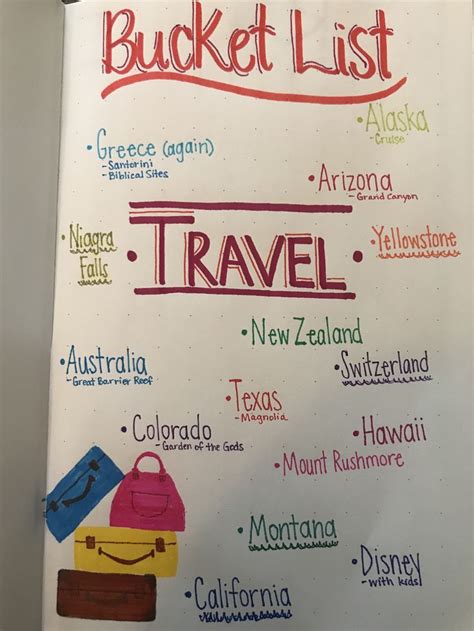 Bucket List
•Alaska
-Cruise
•Greece (again)
-Santorini
-Biblical Sites
•Arizona
-Grand Canyon
•Niagra
Falls
•TRAVEL•
•Yellowstone
•New Zealand
•Australia
-Great Barrier Reef
•Switzerland
•Texas
-Magnolia
•Colorado
-Garden of the Gods
•Hawaii
•Mount Rushmore
•Montana
•Disney
-with kids!
•California